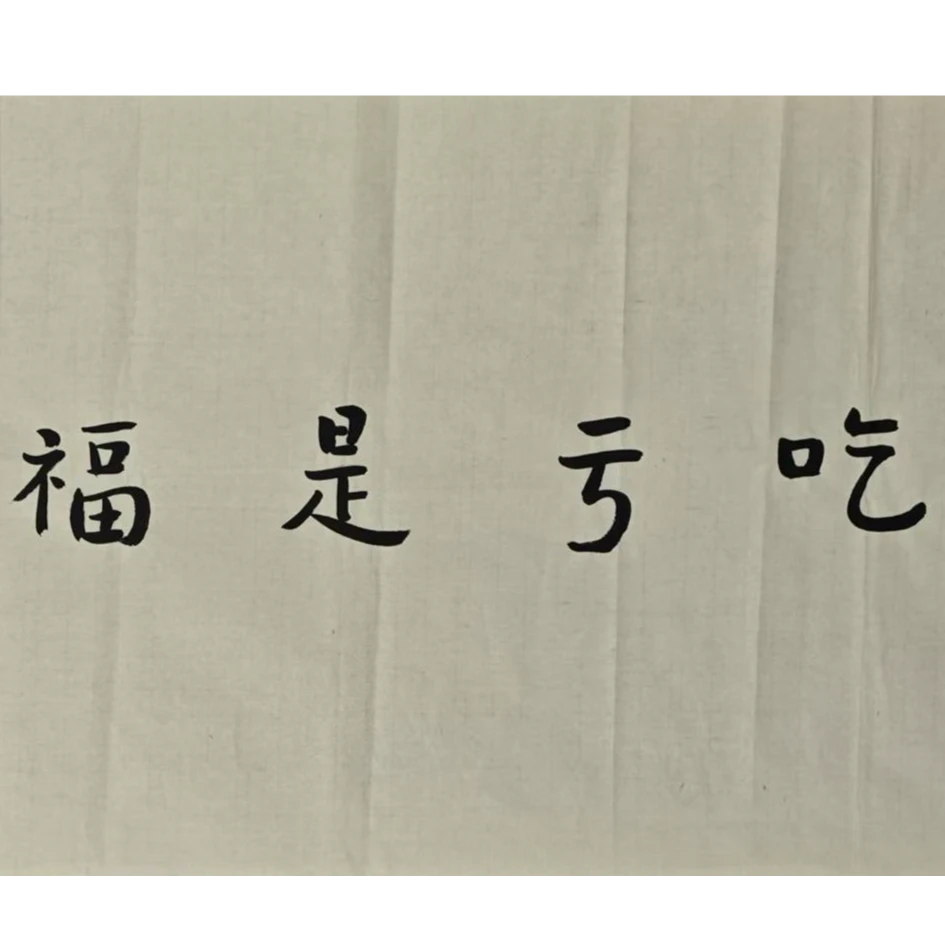 吃亏是福